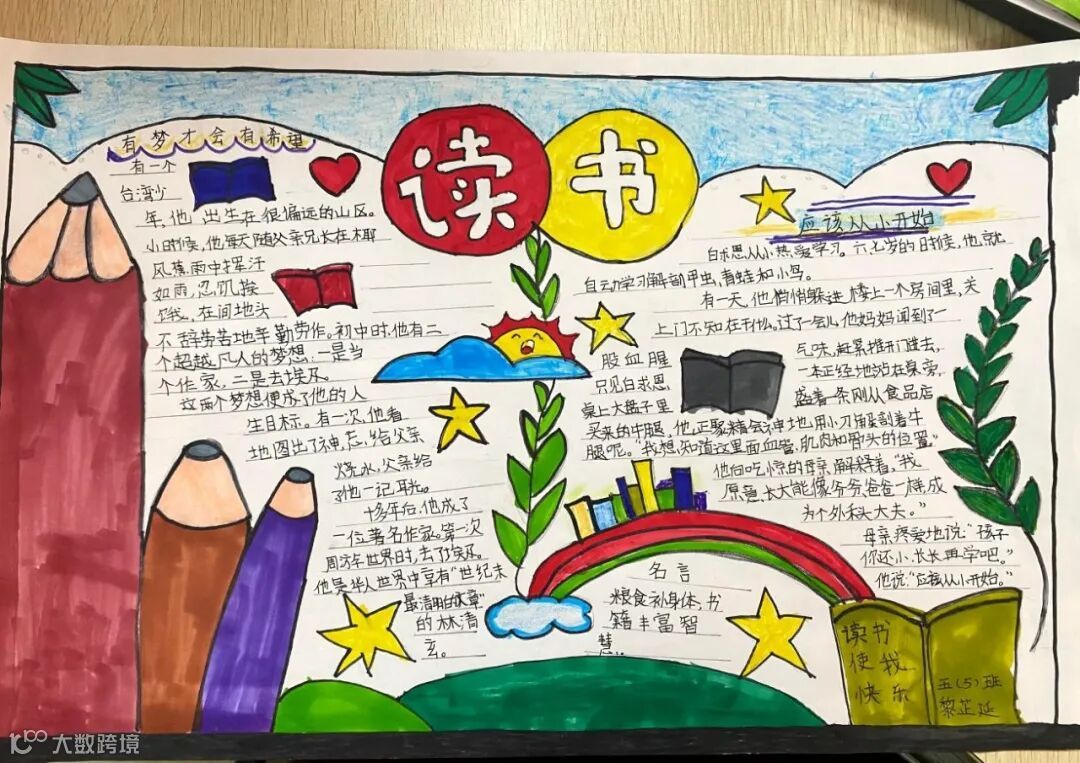 读书
有梦才会有希望
有一个
台湾少
年,他出生在很偏远的山区。
小时候,他每天随父亲兄长在椰
风蕉雨中挥汗
如雨,忍饥挨
饿,在间地头
不辞劳苦地辛勤劳作。初中时,他有二
个超越凡人的梦想:一是当
个作家,二是去埃及。
这两个梦想便成了他的人
生目标。有一次,他看
地图出了神,忘给父亲
烧水,父亲给
了他一记耳光。
十多年后,他成了
一位著名作家。第一次
周游世界时,去了埃及。
他是华人世界中享有“世纪末
最清明的文章”
的林清
玄。
应该从小开始
白求恩从小热爱学习。六七岁的时候,他就
自动学习解剖甲虫,青蛙和小鸟。
有一天,他悄悄躲进楼上一个房间里,关
上门不知在干什么。过了一会儿他妈妈闻到了一
股血腥
气味,赶紧推开门进去,
只见白求恩
一本正经地站在桌旁,
桌上大盘子里
盛着一条刚从食品店
买来的牛腿,他正聚精会神地,用小刀解剖着牛
腿呢。“我想知道这里面血管、肌肉和骨头的位置。”
他向吃惊的母亲解释着,“我
愿意长大能像爷爷、爸爸一样,成
为个外科大夫。”
母亲疼爱地说:“孩子
你还小,长长再学吧。”
他说:“应该从小开始。”
名言
粮食补身体,书
籍丰富智
慧。
读书
使我
快乐
五(5)班
黎芷延
大数跨境